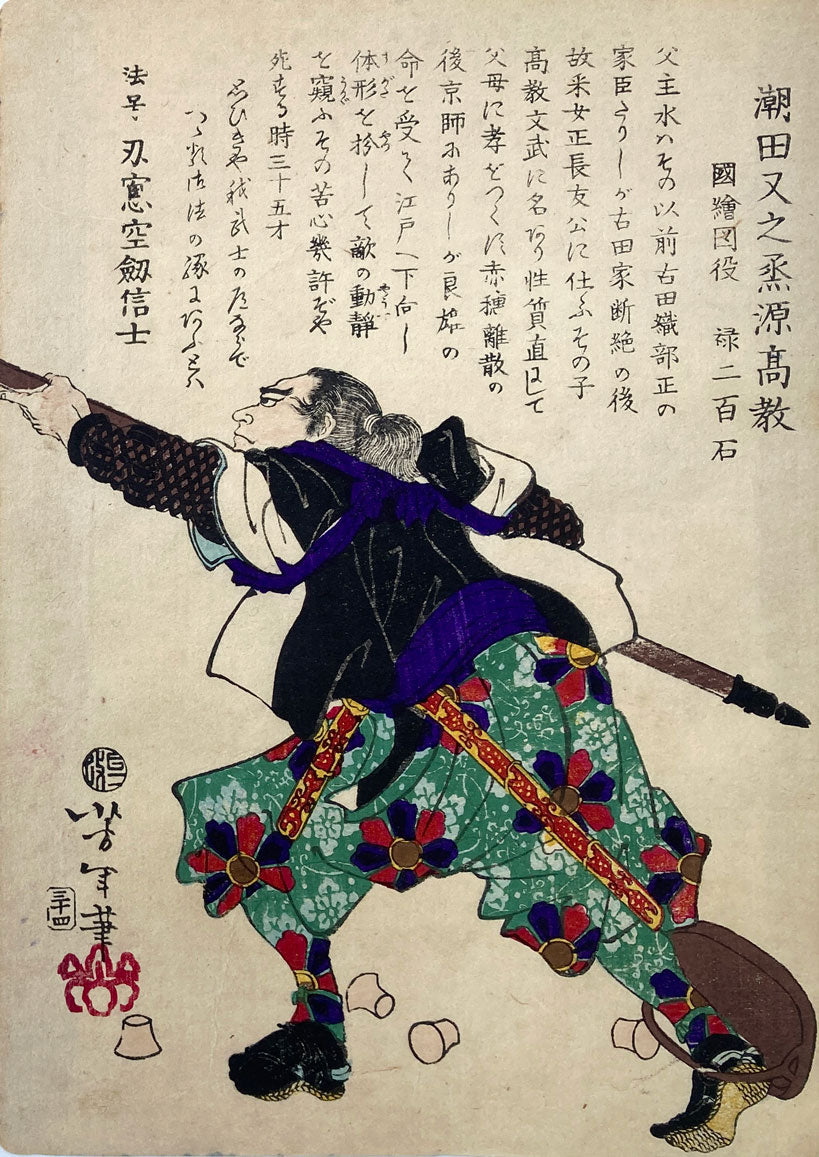 潮田又之丞源高教
國繪図役　禄二百石
父主水ハその以前古田織部正の
家臣たりしが古田家断絶の後
故采女正長友公に仕ふその子
高教文武に名あり性質直にして
父母に孝をつくに赤穂離散の
後京師にありしが良雄の
命を受て江戸へ下向し
体形を扮して敵の動静
を窺ふその苦心幾許ぞや
死する時三十五才
おもひきや我武士の
法の
法号　刃窓空劔信士
芳年筆
三十四